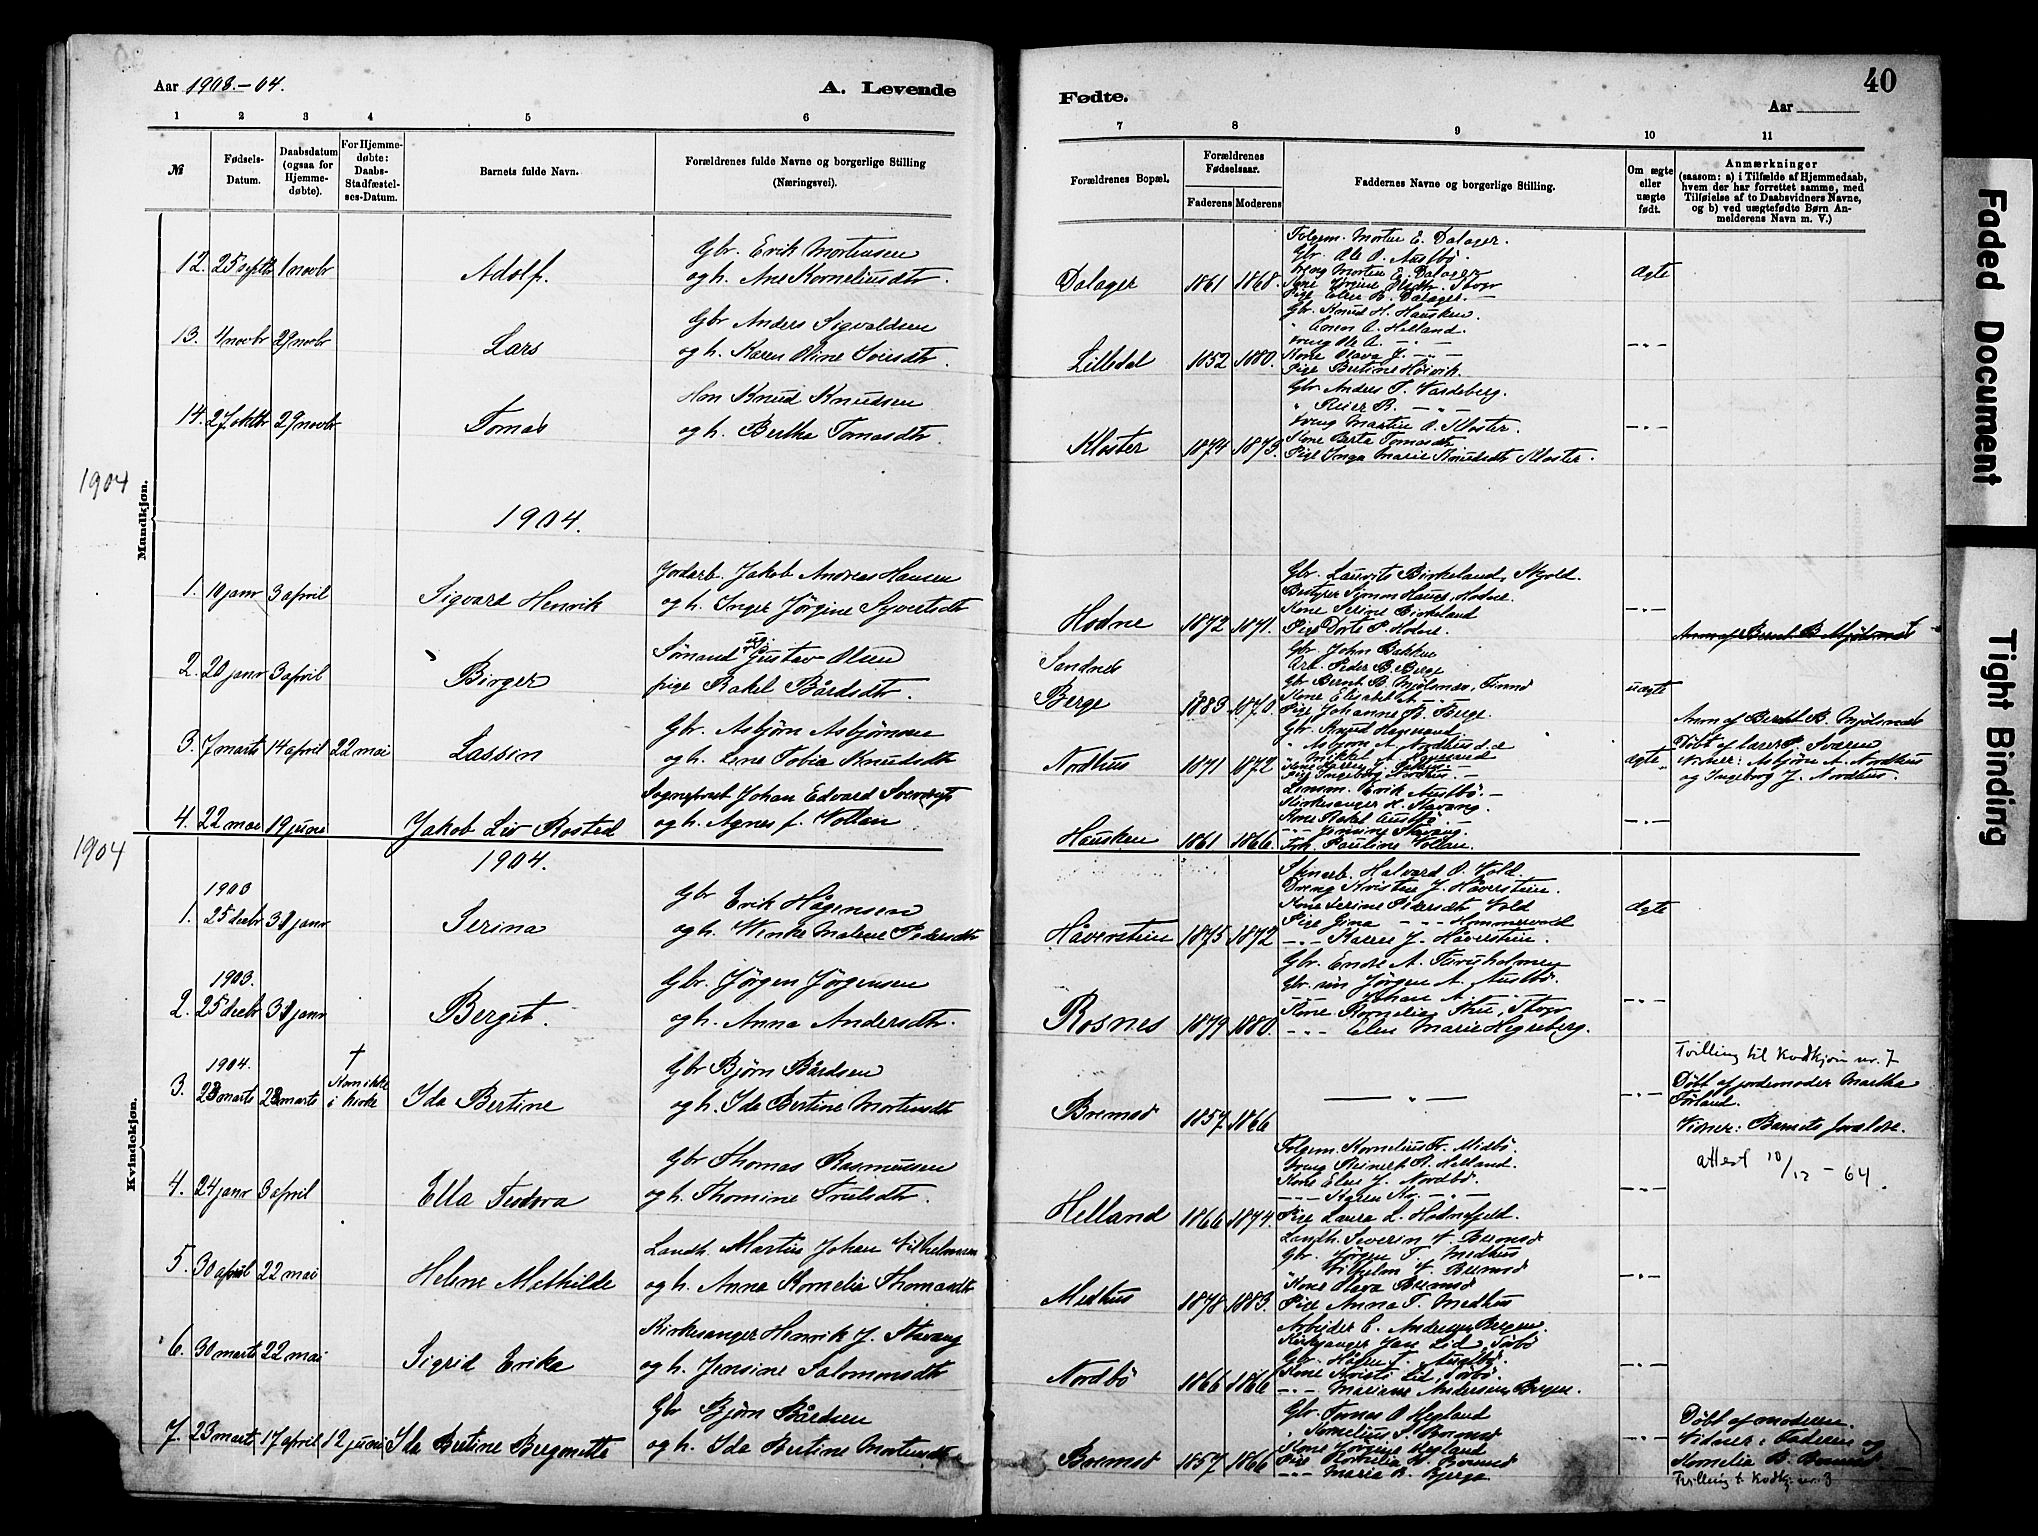 Aar 1903.-04.
A. Levende
Fødte.
40
Aar
1 2 3 4 5 6 7 8 9 10 11
№
Fødsels-Datum.
Daabsdatum (ogsaa for Hjemmedøbte).
For Hjemmedøbte: Daabs-Stadfæstelses-Datum.
Barnets fulde Navn.
Forældrenes fulde Navne og borgerlige Stilling (Næringsvei).
Forældrenes Bopæl.
Forældrenes Fødselsaar.
Faderens Moderens
Faddernes Navne og borgerlige Stilling.
Om ægte eller uægte født.
Anmærkninger (saasom: a) i Tilfælde af Hjemmedaab, hvem der har forrettet samme, med Tilføielse af to Daabsvidners Navne, og b) ved uægtefødte Børn Anmelderens Navn m. V.)
Mandkjøn.
12. 25 septb 1 novbr Adolf. Gbr. Erik Mortensen
og h. Ane Korneliusdtr. Dalager 1861 1868. ægte
Folgem. Morten E. Dalager.
Gbr. Ole O. Austbø.
Dreng Morten E. Dalager
Pige Elen E. Dalager.
13. 4 novbr 29 novbr Lars Gbr Anders Sigvaldsen
og h. Karen Oline Iversdtr Lilledal 1852 1880. -"-
Gbr. Knud H. Hausken.
" Enen O. Helland.
dreng Ole O. -"-
Kone Olava J. -"-
Pige Bertine Høivik.
14. 27 oktbr 29 novbr Tomas Hm Knud Knudsen
og h. Bertha Tomasdtr. Kloster 1874 1873. -"-
Gbr. Anders T. Vardeberg.
" Reier R. -"-
dreng Martin O. Kloster.
Kone Berta Tomasdtr
Pige Inga Marie Knudsdtr Kloster.
1904
1904.
1. 10 janr 3 april Sigvard Henrik Jordarb. Jakob Andreas Hansen
og h. Inger Jørgine Syvertsdtr Hodne 1872 1871. -"-
Gbr. Laurits Birkeland, Skjold.
Kone Serine Birkeland
Pige Dorte P. Hodne.
Anm af Bernt B. Mjølsnes
2. 20 janr 3 april Birger Sømand ug. Gustav Olsen
pige Rakel Bårdsdtr. Sandnes
Berge 1883 1870. uægte
Gbr. John Bakken
Arb. Peder B. Berge
Gbr Bernt B. Mjølsnes, Finnø
Kone Elisabet A. -"-
Pige Johanne B. Berge.
Anm af Bernt B. Mjølsnes
3. 7 marts 14 april 22 mai Lassin Gbr. Asbjørn Asbjørnsen
og h. Lene Tobia Knudsdtr Nordhus 1871 1872 ægte
Gbr. Knud Hagesand
" Asbjørn A. Nordhus d.æ
Pige Ingeborg Nordhus.
Døbt af lærer P. Sværen
Vidner: Asbjørn A. Nordhus
og Ingeborg J. Nordhus.
4. 22 mai 19 juni Jakob Liv Rosted Sogneprest Johan Edvard Sverdrup
og h. Agnes f. Vollan Hausken 1861 1866. -"-
Lensm. Erik Austbø. -
Kirkesanger H. Stavang.
Kone Rakel Austbø. -
-"- Jensine Stavang.
Frk. Pauline Vollan.
1904
1904.
Kvindekjøn.
1903
1. 25 decbr 31 janr Serina Gbr Erik Hågensen
og h. Wenke Malene Pedersdtr Håverstein 1875 1872 ægte
Stenarb. Halvard O. Vold.
Dreng Kristen J. Håverstein.
Kone Serine Pedersdtr Vold
Pige Gina -"- Hommersand
-"- Karen J. Håverstein.
1903.
2. 25 decbr 31 janr Berget. Gbr. Jørgen Jørgensen
og h. Anna Andersdtr. Rosnes 1879 1880. -"-
Gbr. Endre A. Furuholmen
Gbr. søn Jørgen A. Austbø.
-"- Johan A. -"-
Kone Kornelia Stu, Stog
-"- Elen Marie Hegreberg.
1904.
3. 23 marts 23 marts † Kom ikke i kirke Ida Bertine Gbr Bjørn Bårdsen
og h. Ida Bertine Mortensdtr Bremsø 1857 1866 -"-
Tvilling til Kvdkjøn nr. 7
Døbt af jordemoder Martha
Førland.
Vidner: Barnets forældre.
4. 24 janr 3 april Ella Teodora Gbr Thomas Rasmussen
og h. Thomine Trulsdtr. Helland 1866 1874. -"-
Folgem. Kornelius Fr. Midbø.
Dreng Steinert R. Helland.
Kone Elen J. Nordbø.
-"- Karen Kr. -"-
Pige Laura L. Hodnefjeld.
attest 10/12 - 64.
5. 30 april 22 mai Helene Mathilde Landh. Martin Johan Vilhelmsen
og h. Anna Kornelia Thomasdtr Medhus 1878 1883. -"-
Landh. Severin V. Bremsø
Gbr. Jørgen T. Medhus
" Vilhelm V. Bremsø
Kone Olava Bremsø
Pige Anna T. Medhus
6. 30 marts 22 mai Sigrid Erika Kirkesanger Henrik J. Stavang
og h. Jensine Salomonsdtr Nordbø 1866 1866 -"-
Arbeider C. Andersen Bergen.
Kirkesanger Jan Lid, Førbø
Gbr. Hågen T. Austbø.
Kone Kristi Lid, Førbø.
-"- Mariane Andersen, Bergen.
7. 23 marts 17 april 12 juni Ida Bertine Bergmitte Gbr Bjørn Bårdsen
og h. Ida Bertine Mortensdtr Bremsø 1857 1866 -"-
Gbr. Tomas O. Hegland
" Kornelius S. Bremsø
Kone Jørgine Hegland
Pige Kornelia B. Bremsø
-"- Maria R. Bjerga
Døbt af moderen.
Vidner: Faderen og
Kornelia B. Bremsø
Tvilling t. Kvdkj. nr. 3
Faded Document
Tight Binding